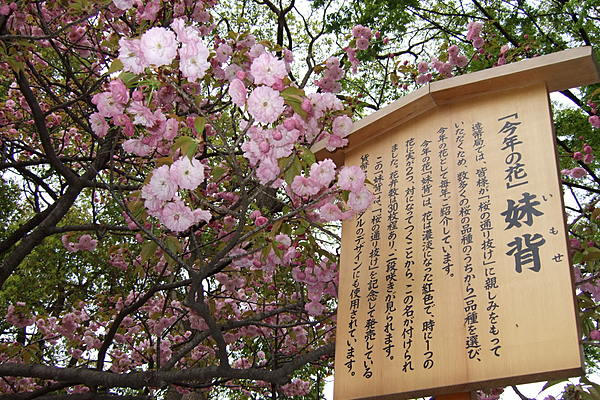 「今年の花」妹背
いもせ
造幣局では、皆様に「桜の通り抜け」に親しみをもって
いただくため、数多くの桜の品種のうちから一品種を選び、
今年の花として毎年ご紹介しています。
今年の花「妹背」は、花は濃淡になった紅色で、時に一つの
花に実が2つ、対になってつくことから、この名が付けられ
ました。花弁数は30枚程あり、二段咲きが見られます。
この「妹背」は「桜の通り抜け」を記念して発売している
貨幣 ルのデザインにも使用されています。